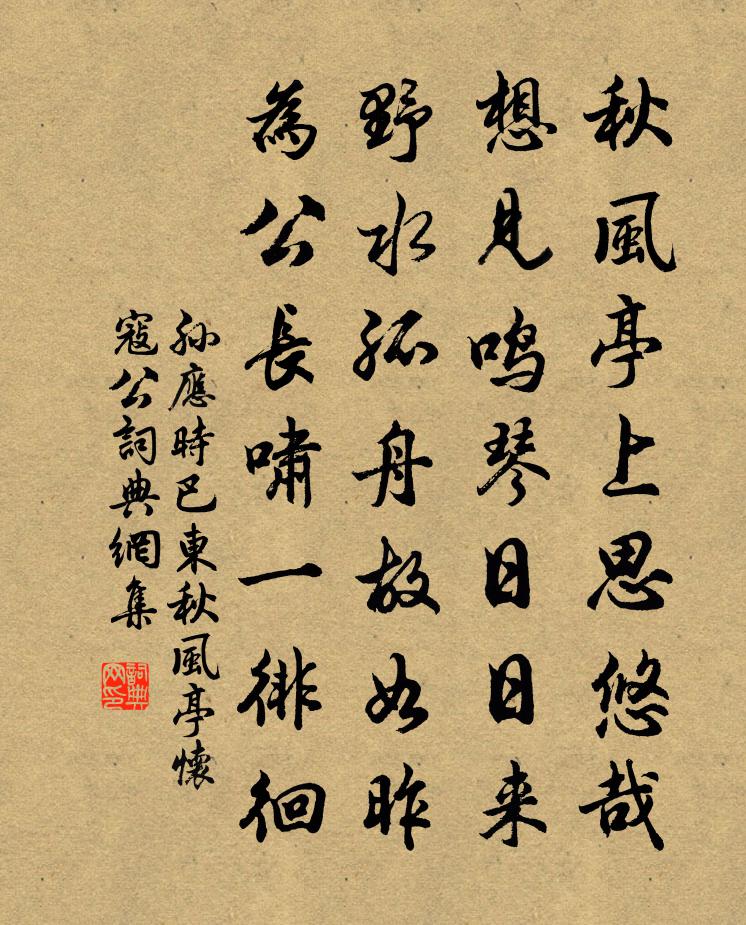 秋風亭上思悠哉
想見鳴琴日日来
野水孤舟故如昨
為公長嘯一徘徊
孙應時巴東秋風亭懷
寇公詞典網集
詞典网印